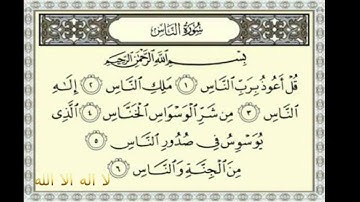 سُورَةُ النَّاسِ
بِسْمِ اللَّهِ الرَّحْمَٰنِ الرَّحِيمِ
قُلْ أَعُوذُ بِرَبِّ النَّاسِ ١ مَلِكِ النَّاسِ ٢ إِلَٰهِ
النَّاسِ ٣ مِن شَرِّ الْوَسْوَاسِ الْخَنَّاسِ ٤ الَّذِي
يُوَسْوِسُ فِي صُدُورِ النَّاسِ ٥
مِنَ الْجِنَّةِ وَالنَّاسِ ٦
لا اله الا الله